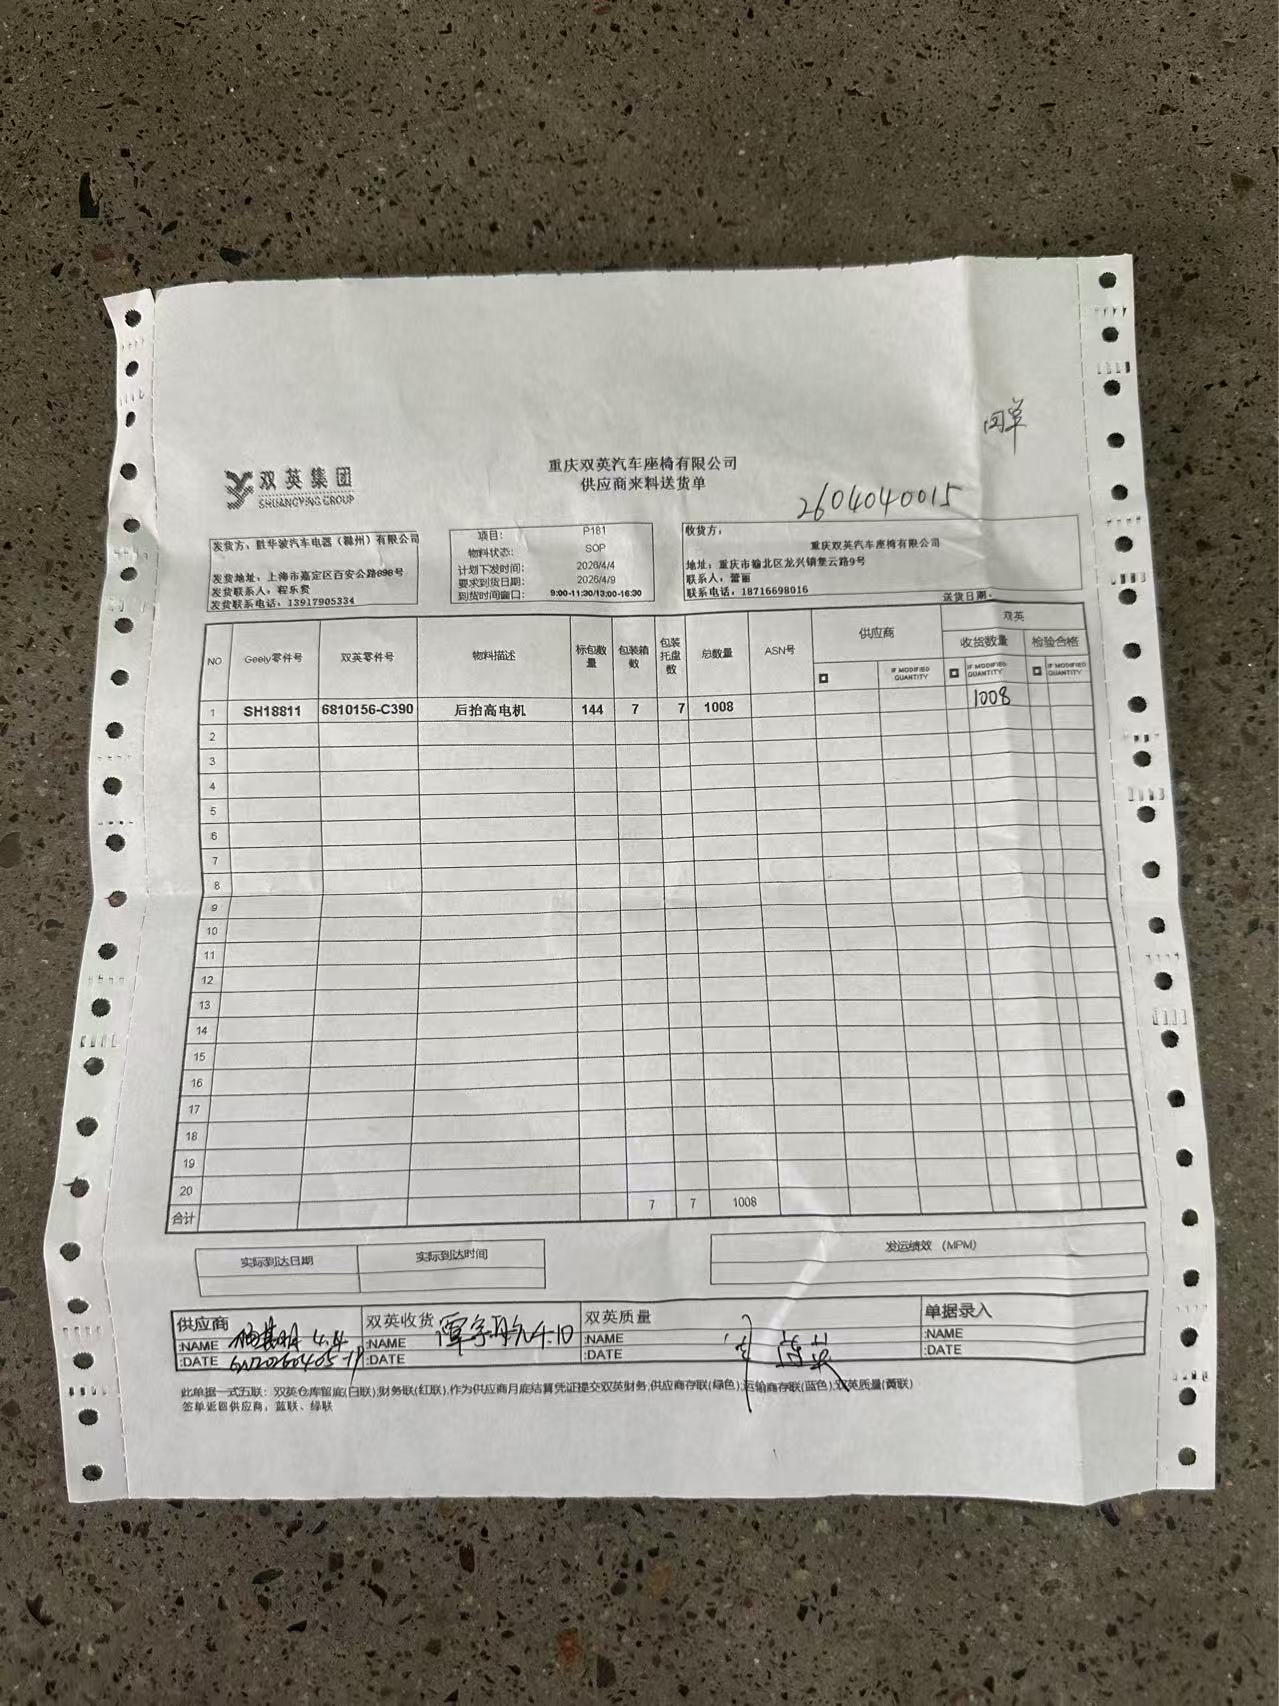 回单
双英集团
SHUANGYING GROUP
重庆双英汽车座椅有限公司
供应商来料送货单
2604040015
发货方：胜华波汽车电器（滁州）有限公司
发货地址：上海市嘉定区百安公路898号
发货联系人：程乐贤
发货联系电话：13917905334
项目： P181
物料状态： SOP
计划下发时间： 2026/4/4
要求到货日期： 2026/4/9
到货时间窗口： 9:00-11:30/13:00-16:30
收货方：
重庆双英汽车座椅有限公司
地址：重庆市渝北区龙兴镇集云路9号
联系人：蕾丽
联系电话：18716698016
送货日期：
NO Geely零件号 双英零件号 物料描述 标包数量 包装箱数 包装托盘数 总数量 ASN号 供应商 双英
收货数量 检验合格
IF MODIFIED QUANTITY IF MODIFIED QUANTITY IF MODIFIED QUANTITY
1 SH18811 6810156-C390 后抬高电机 144 7 7 1008 1008
2
3
4
5
6
7
8
9
10
11
12
13
14
15
16
17
18
19
20
合计 7 7 1008
实际到达日期 实际到达时间
发运绩效 （MPM）
供应商 双英收货 双英质量 单据录入
:NAME 4.4 :NAME 4.10 :NAME :NAME
:DATE :DATE :DATE :DATE
此单据一式五联：双英仓库留底(白联),财务联(红联),作为供应商月底结算凭证提交双英财务,供应商存联(绿色),运输商存联(蓝色),双英质量(黄联)
签单返回供应商：蓝联、绿联